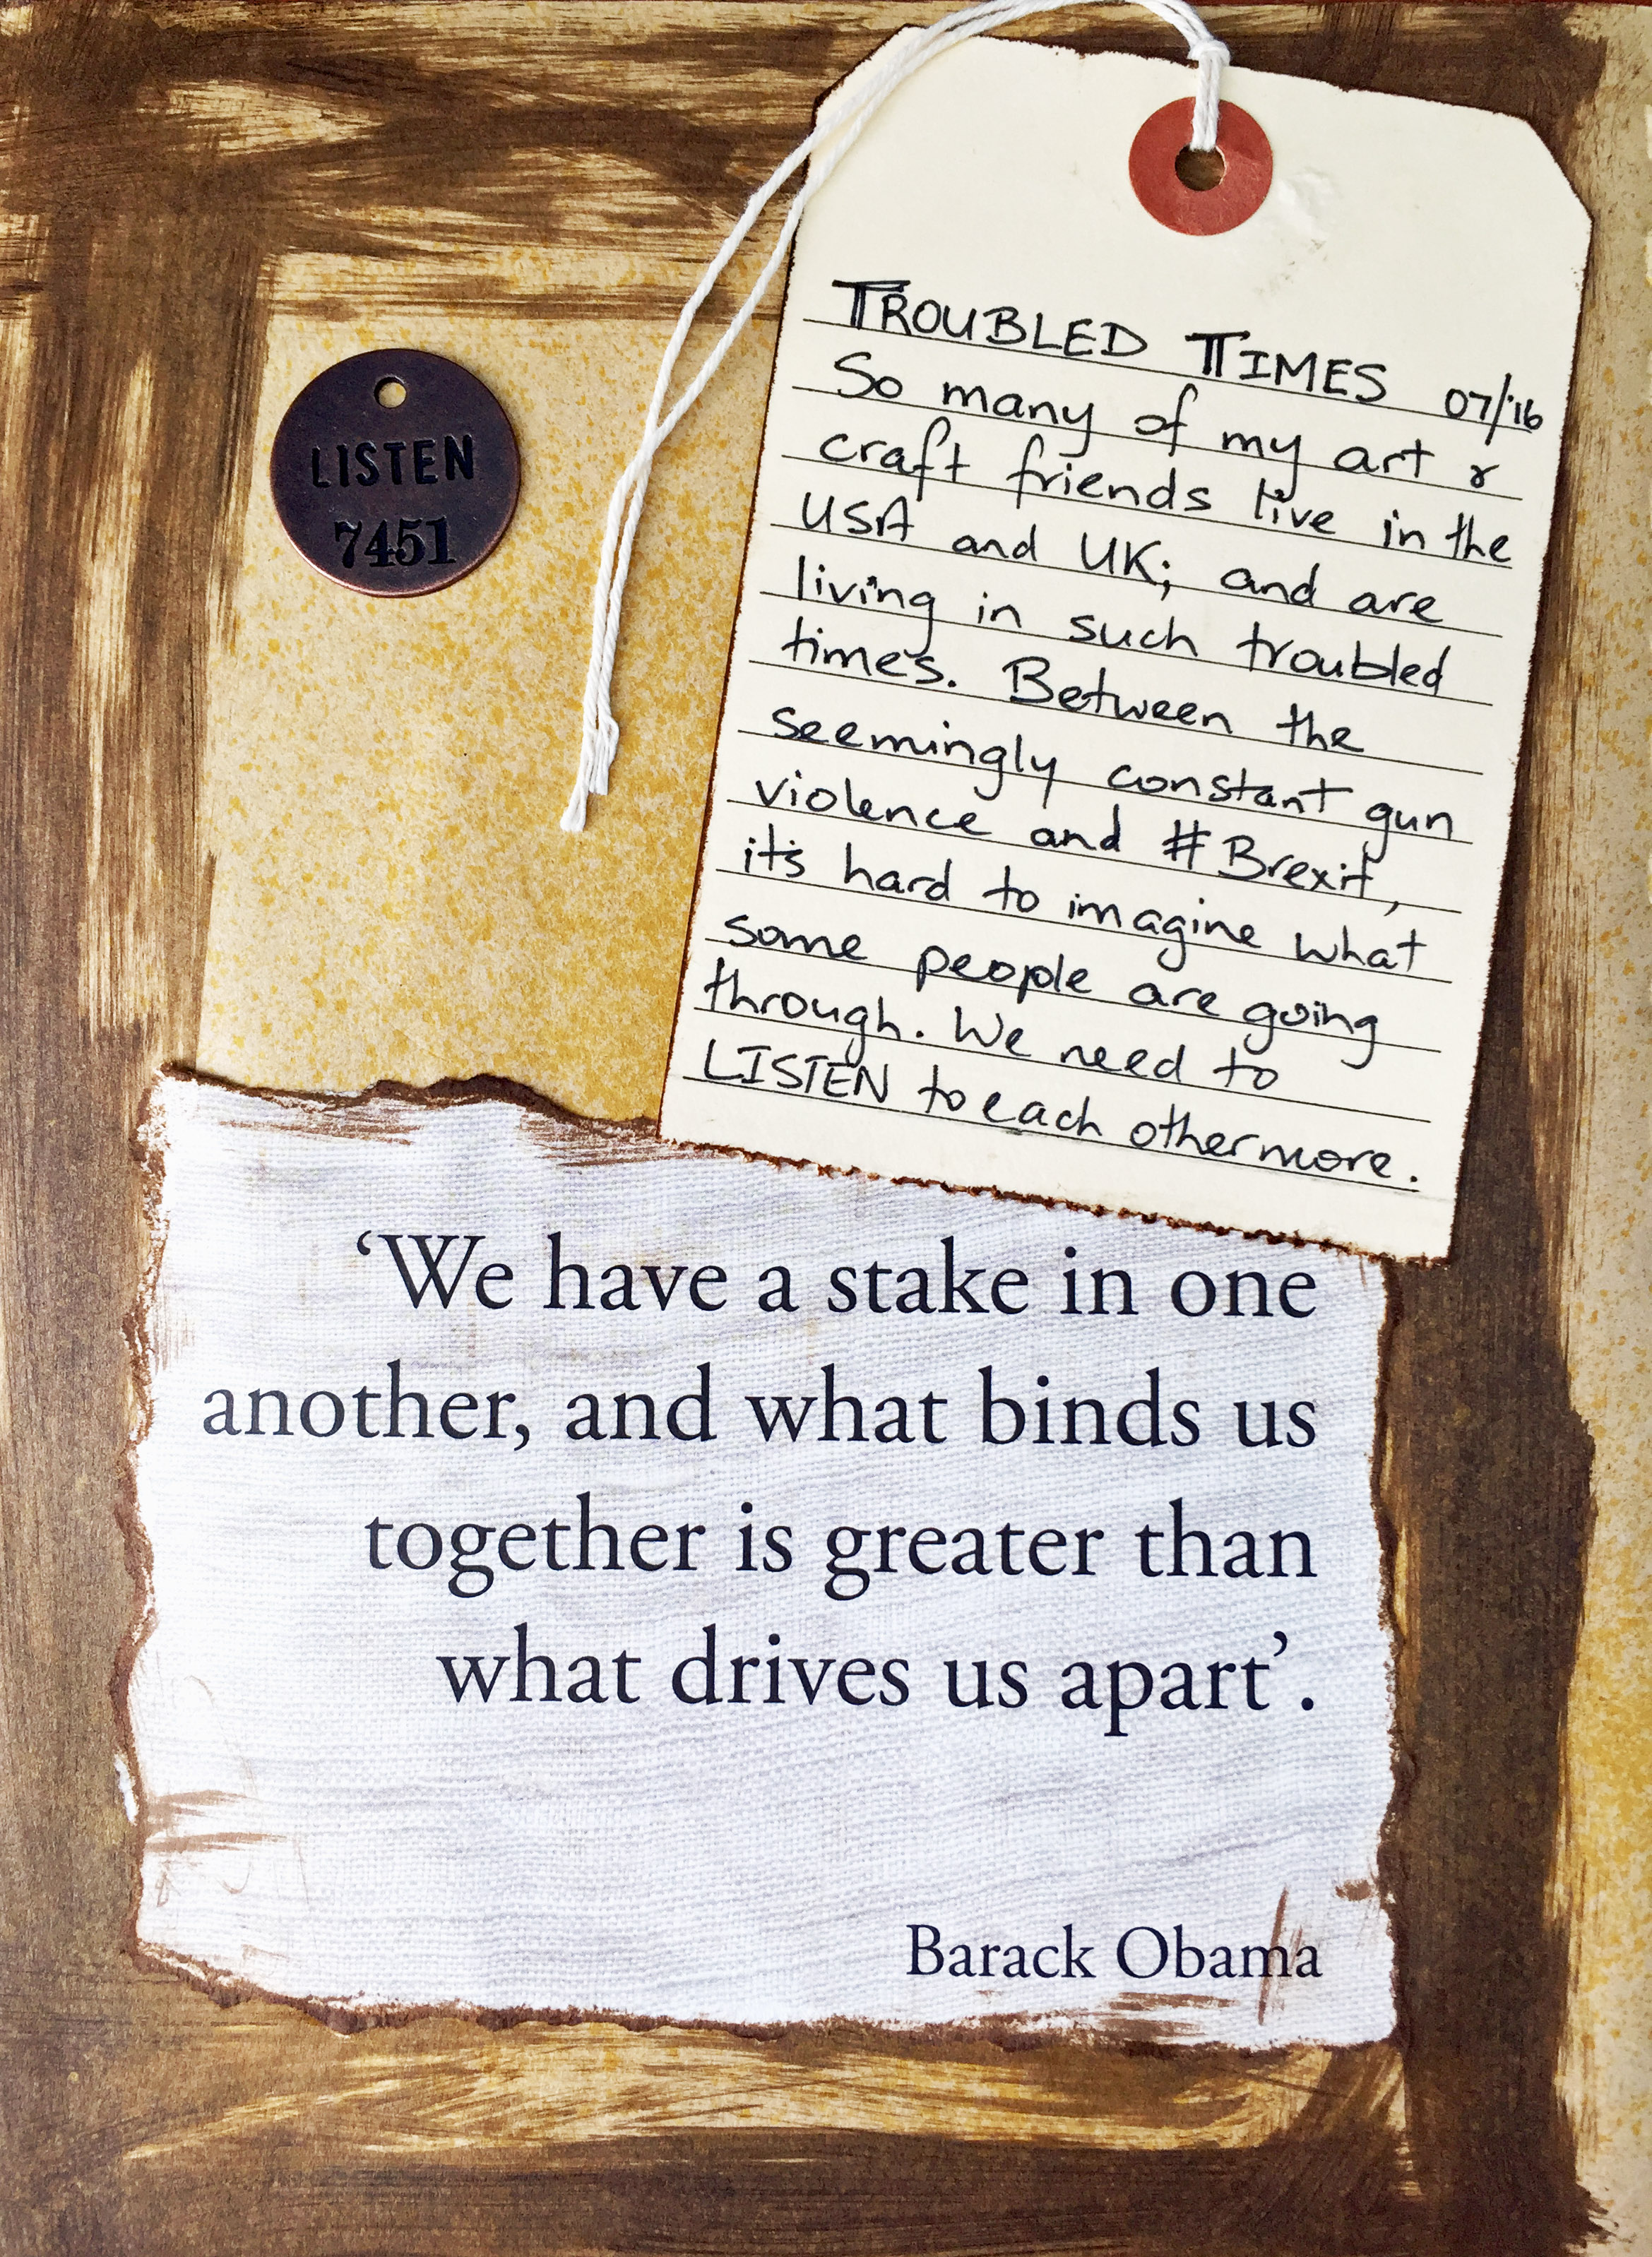 LISTEN
7451
TROUBLED TIMES 07/'16
So many of my art &
craft friends live in the
USA and UK; and are
living in such troubled
times. Between the
seemingly constant gun
violence and #Brexit,
it's hard to imagine what
some people are going
through. We need to
LISTEN to each other more.
‘We have a stake in one
another, and what binds us
together is greater than
what drives us apart’.
Barack Obama